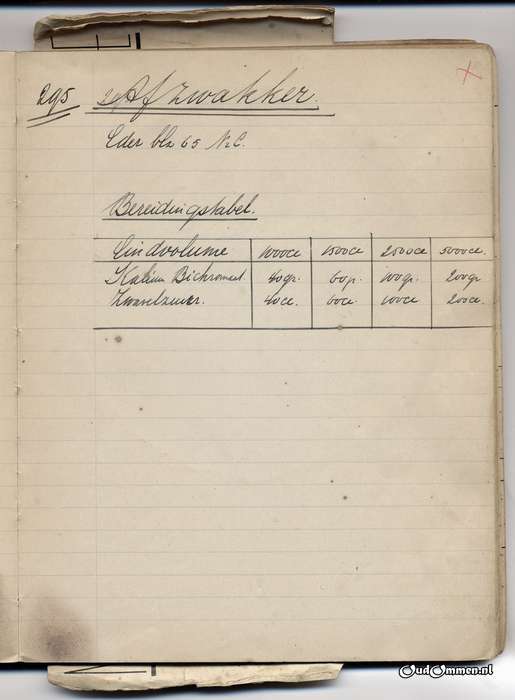 295 Afzwakker.
Eder blz 65 N.C.
Bereidingstabel.
Eindvolume 1000cc 1500cc 2500cc 5000cc.
Kalium Bichromaat 40gr. 60gr. 100gr. 200gr
Zwavelzuur. 40cc. 60cc. 100cc 200cc.
OudOmmen.nl